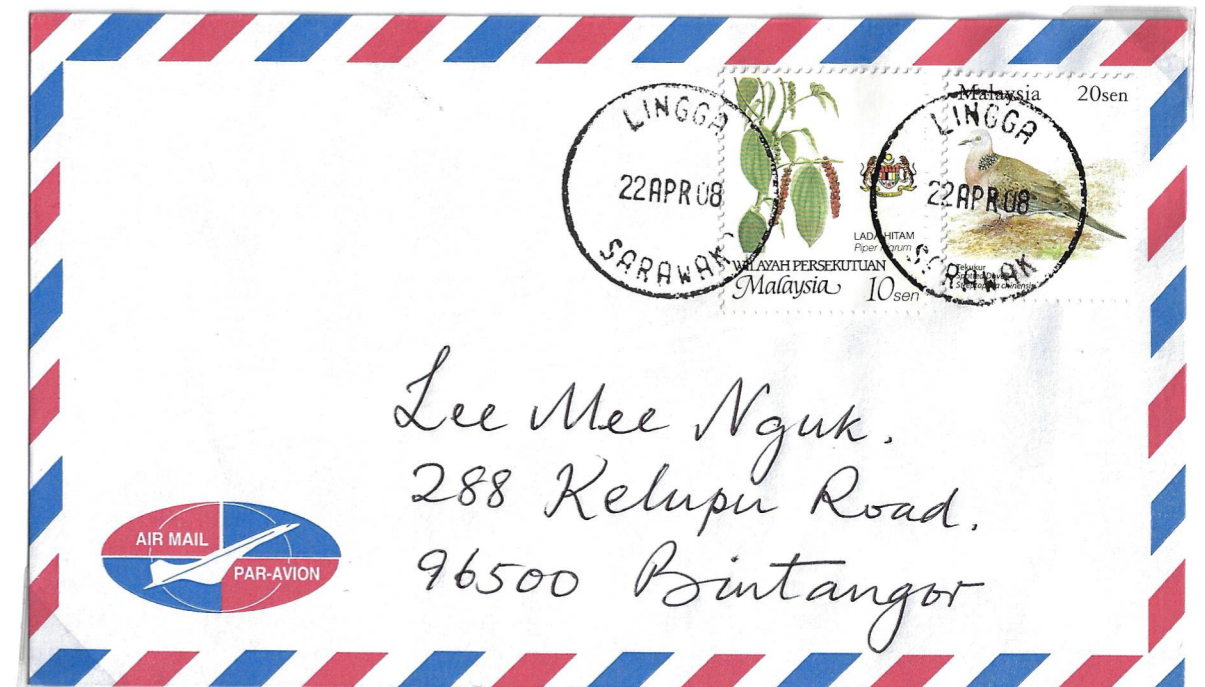 LINGGA
22APR08
SARAWAK
LADA HITAM
Piper nigrum
WILAYAH PERSEKUTUAN
Malaysia 10sen
Malaysia 20sen
LINGGA
22APR08
SARAWAK
Tekukur
Spotted Dove
Streptopelia chinensis
Lee Mee Nguk.
288 Kelupu Road.
96500 Bintangor
AIR MAIL
PAR-AVION